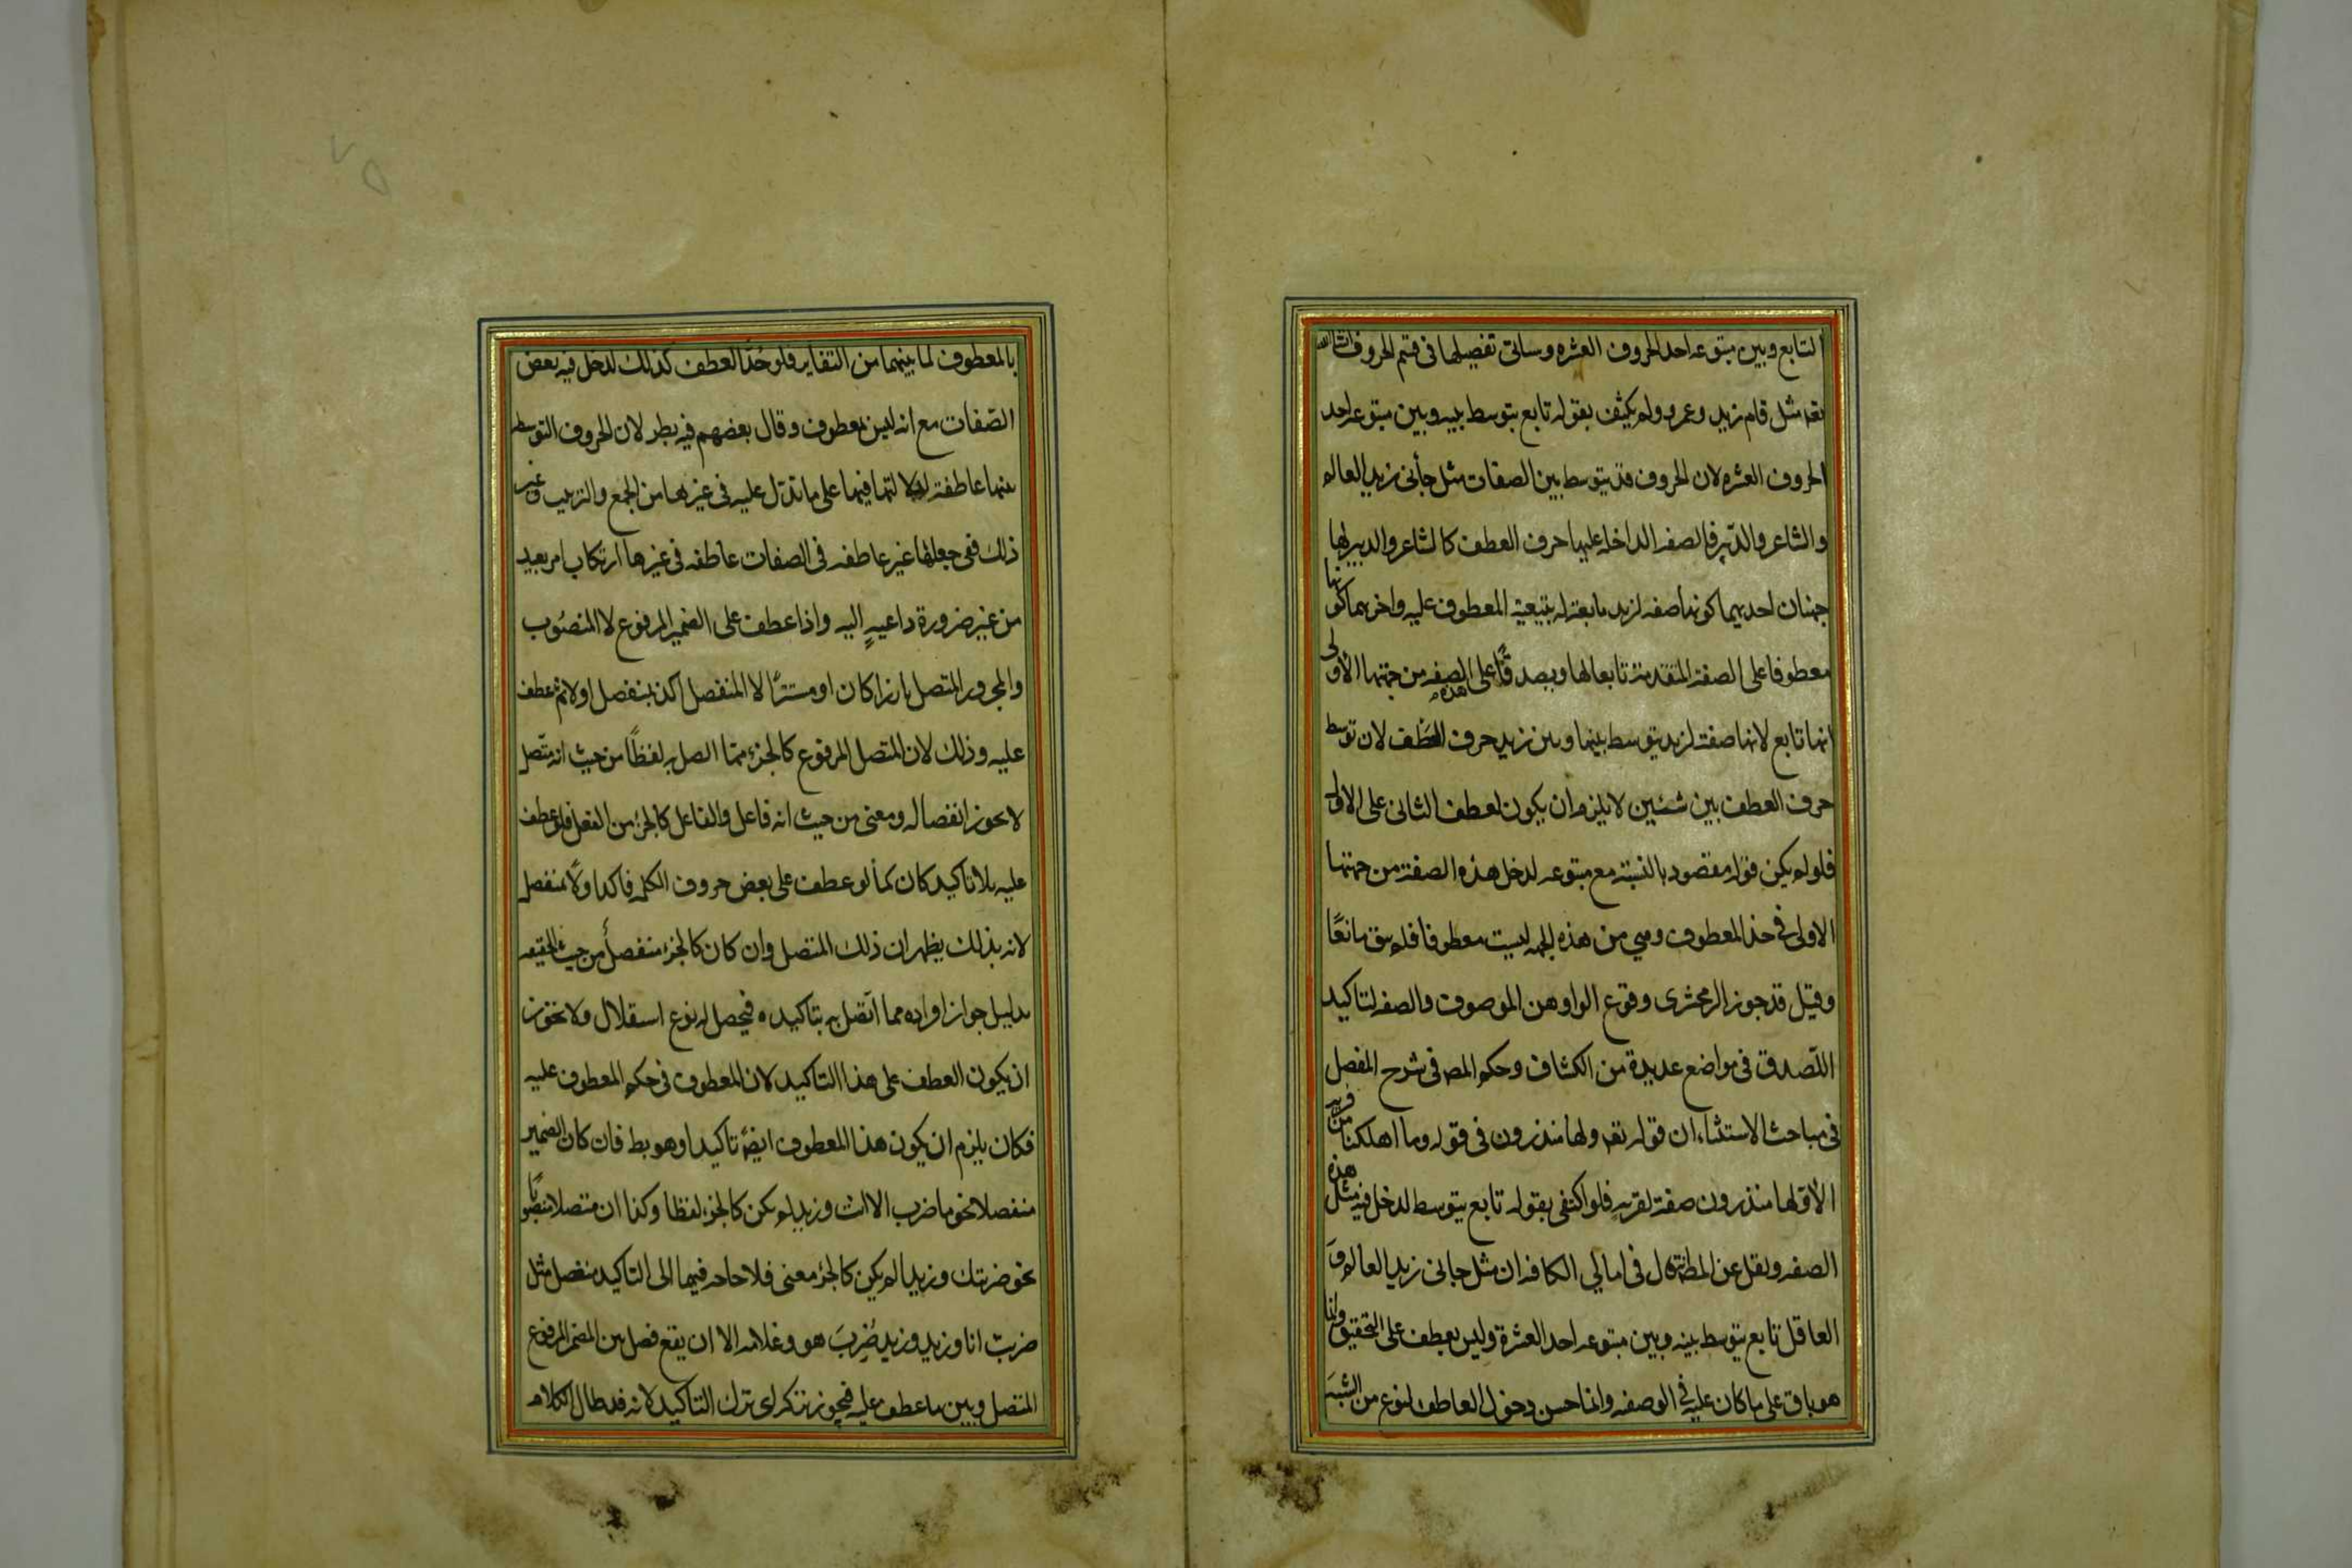 التابع وبين متبوعه احد الحروف العشره وسياتى تفصيلها فى قسم الحروف انشاالله
تعه مثل قام زيد وعمرو ولم يكتف بقوله تابع يتوسط بينه وبين متبوعه احد
الحروف العشره لان الحروف قد يتوسط بين الصفات مثل جأنى زيد العالم
والشاعر والدبير فالصفه الداخله عليها حرف العطف كالشاعر والدبير لها
جهتان احديهما كونها صفه لزيد تابعة له بتبعية المعطوف عليه واخريهما كونها
معطوفا على الصفة المتقدمة تابعا لها ويصدق على هذه الصفه من جهتها الأولى
انها تابع لانها صفة لزيد يتوسط بينها وبين زيد حرف العطف لان توسط
حرف العطف بين شيئين لا يلزم ان يكون لعطف الثانى على الاول
فلو لم يكن قوله مقصود بالنسبة مع متبوعه لدخل هذه الصفة من جهتها
الاولى فى حد المعطوف وهي من هذه الجهه ليست معطوفا فلم يبق مانعًا
وقيل قد جوز الزمخشرى وقوع الواو بين الموصوف والصفه لتاكيد
اللصوق فى مواضع عديدة من الكشاف وحكم المص فى شرح المفصل
فى مباحث الاستثناء ان قوله تعه ولها منذرون فى قوله وما اهلكنا من قريه
الا ولها منذرون صفة لقريه فلو اكتفى بقوله تابع يتوسط لدخل فيه مثل هذه
الصفه ونقل عن المص انه قال فى امالي الكافيه ان مثل جانى زيد العالم و
العاقل تابع يتوسط بينه وبين متبوعه احد العشرة وليس بعطف على التحقيق وانما
هو باق على ما كان عليه فى الوصفه وانما حسن دخول العاطف لنوع من الشبه
بالمعطوف لما بينهما من التغاير فلو حدّ العطف كذلك لدخل فيه بعض
الصّفات مع انه ليس بمعطوف وقال بعضهم فيه نظر لان الحروف المتوسط
بينها عاطفة لدلالتها فيها على ما تدل عليه فى غيرها من الجمع والترتيب وغير
ذلك ففى جعلها غير عاطفه فى الصفات عاطفه فى غيرها ارتكاب امر بعيد
من غير ضرورة داعيةٍ اليه واذا عطف على الضمير المرفوع لا المنصُوب
والمجرور المتصل بارزا كان او مستترًا لا المنفصل اكد بمنفصل اولا ثم عطف
عليه وذلك لان المتصل المرفوع كالجزء مما اتصل به لفظًا من حيث انه متّصل
لا يجوز انفصاله ومعنى من حيث انه فاعل والفاعل كالجزء من الفعل فلو عطف
عليه بلا تاكيد كان كما لو عطف على بعض حروف الكلمه فاكد اولًا بمنفصل
لانه بذلك يظهر ان ذلك المتصل وان كان كالجزء منفصل من حيث الحقيقه
بدليل جواز افراده مما اتّصل به بتاكيده فيحصل له نوع استقلال ولا يجوز
ان يكون العطف على هذا التاكيد لان المعطوف فى حكم المعطوف عليه
فكان يلزم ان يكون هذا المعطوف ايضًا تاكيدا وهو بط فان كان الضمير
منفصلا نحو ما ضرب الا انت وزيد لم يكن كالجزء لفظا وكذا ان متصلا منصوبًا
نحو ضربتك وزيدا لم يكن كالجزء معنى فلا حاجه فيهما الى التاكيد بمنفصل مثل
ضربت انا وزيد وزيد ضَربَ هو وغلامه الا ان يقع فصل بين الضمير المرفوع
المتصل وبين ما عطف عليه فيجوز تركه اى ترك التاكيد لانه قد طال الكلام